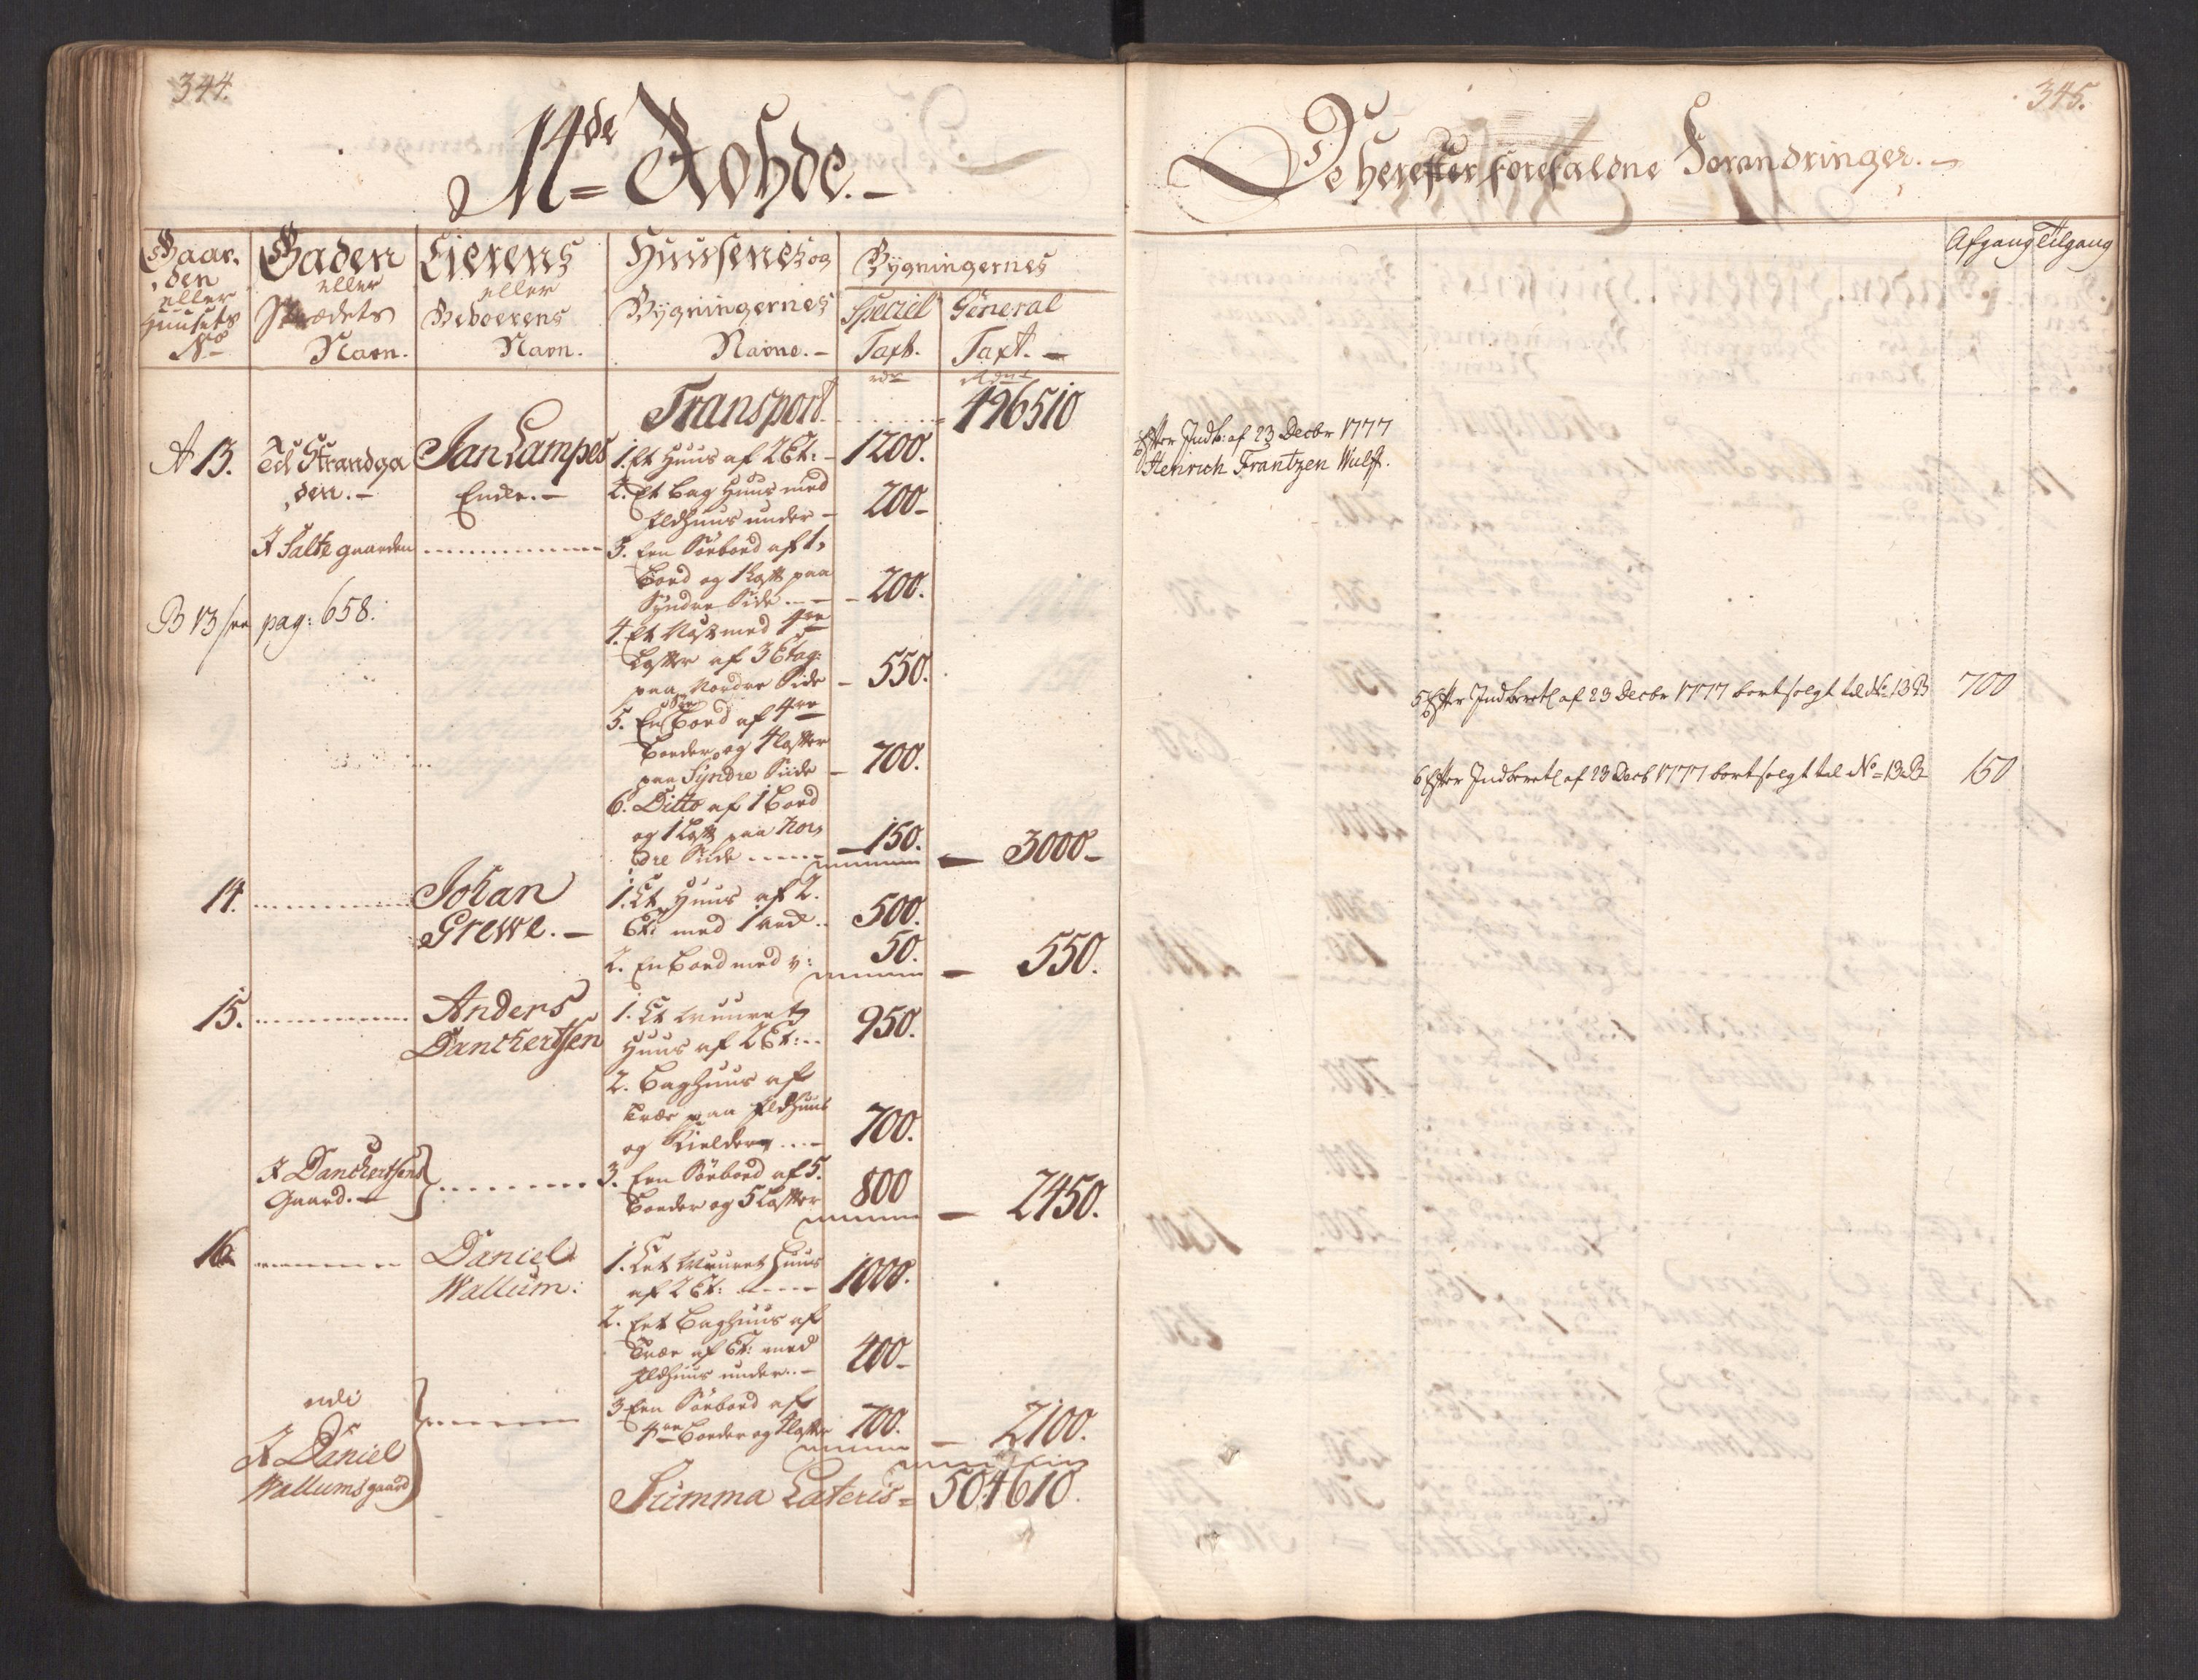 344.
14de Rohde.
Gaar-
den
eller
Huusets
No
Gaden
eller
Strædets
Navn.
Eierens
eller
Beboerens
Navn.
Huusenes og
Bygningernes
Navne.
Bygningernes
Speciel
Taxt.
General
Taxt.
Transport. 496510
A 13. Til Strandga
den. Jan Lampes
Enke. 1. Et Huus af 2 Et: 1200.
2. Et Bag Huus med
Ildhuus under 200
I Salte gaarden 3. Een Søeboed af 1
Boed og 1 Loft paa
Syndre Side 200.
B 13 see pag: 658. 4. Et Nøst med 4re
Lofter af 3 Etag:
paa Nordre Side 550.
5. En Søe Boed af 4re
Boeder og 4 Lofter
paa Syndre Side 700.
6. Ditto af 1 Boed
og 1 Loft paa Nor,
dre Side 150. 3000
14. Johan
Grewe. 1. Et Huus af 2.
Et: med 500.
2. En Boed med 50. 550.
15. Anders
Danchertsen 1. Et Muuret
Huus af 2 Et: 950.
2. Baghuus af
Træe paa Ildhuus
og Kielder 700.
I Danchertsens
Gaard. 3. Een Søeboed af 5.
Boeder og 5 Lofter 800 2450.
16. Daniel
Wallum: 1. Eet Muuret Huus
af 2 Et: 1000.
2. Eet Baghuus af
Træe af Et: med
Ildhuus under 400
I Daniel
Wallums gaard 3 Een Søeboed af
4re Boeder og 4 Lofter 700. 2100.
Summa Lateris 504610.
345.
De herefter forefaldne Forandringer.
Afgang Tilgang
Efter Indb: af 23 Decbr 1777
Henrich Frantzen Wulff.
5 Efter Indberetl af 23 Decbr 1777 bortsolgt til No 13 B 700
6 Efter Indberetl af 23 Decb 1777 bortsolgt til No 13 B 150